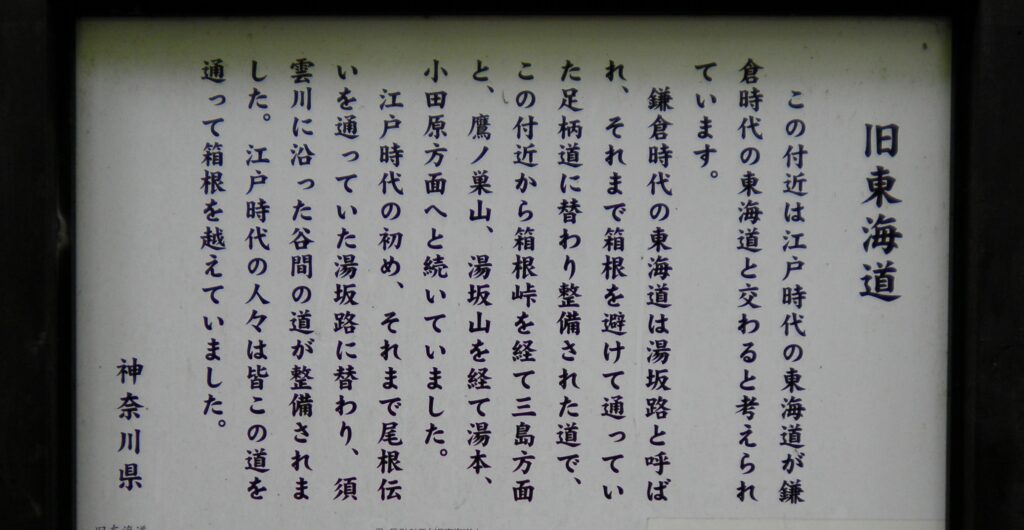 旧東海道
この付近は江戸時代の東海道が鎌
倉時代の東海道と交わると考えられ
ています。
鎌倉時代の東海道は湯坂路と呼ば
れ、それまで箱根を避けて通ってい
た足柄道に替わり整備された道で、
この付近から箱根峠を経て三島方面
と、鷹ノ巣山、湯坂山を経て湯本、
小田原方面へと続いていました。
江戸時代の初め、それまで尾根伝
いを通っていた湯坂路に替わり、須
雲川に沿った谷間の道が整備されま
した。江戸時代の人々は皆この道を
通って箱根を越えていました。
神奈川県